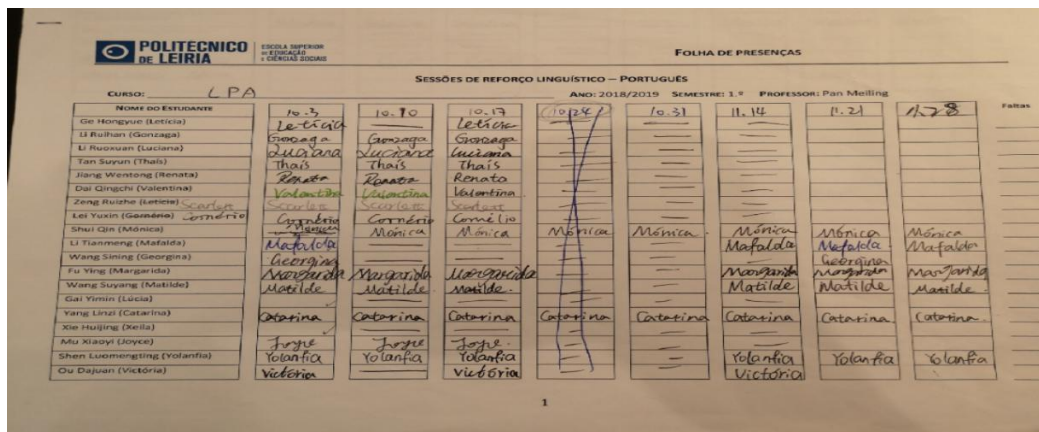 POLITECNICO DE LEIRIA
ESCOLA SUPERIOR DE EDUCAÇÃO E CIÊNCIAS SOCIAIS
FOLHA DE PRESENÇAS
SESSÕES DE REFORÇO LINGUÍSTICO – PORTUGUÊS
CURSO: LPA ANO: 2018/2019 SEMESTRE: 1.º PROFESSOR: Pan Meiling
NOME DO ESTUDANTE 10.3 10.10 10.17 10.24 10.31 11.14 11.21 11.28 Faltas
Ge Hongyue (Letícia) Letícia Letícia
Li Ruihan (Gonzaga) Gonzaga Gonzaga Gonzaga
Li Ruoxuan (Luciana) Luciana Luciana Luciana
Tan Suyun (Thaís) Thaís Thaís Thaís
Jiang Wentong (Renata) Renata Renata Renata
Dai Qingchi (Valentina) Valentina Valentina Valentina
Zeng Ruizhe (Letície) Scarlett Scarlett Scarlett Scarlett
Lei Yuxin (Gornério) Cornério Cornério Cornério Cornélio
Shui Qin (Mónica) Mónica Mónica Mónica Mónica Mónica Mónica Mónica
Li Tianmeng (Mafalda) Mafalda Mafalda Mafalda Mafalda
Wang Sining (Georgina) Georgina Georgina
Fu Ying (Margarida) Margarida Margarida Margarida Margarida Margarida Margarida
Wang Suyang (Matilde) Matilde Matilde Matilde. Matilde Matilde Matilde
Gai Yimin (Lúcia)
Yang Linzi (Catarina) Catarina Catarina Catarina Catarina Catarina Catarina Catarina Catarina.
Xie Huijing (Xeila)
Mu Xiaoyi (Joyce) Joyce Joyce Joyce.
Shen Luomengting (Yolanfia) Yolanfia Yolanfia Yolanfia Yolanfia Yolanfia Yolanfia
Ou Dajuan (Victória) Victória Victória Victória
1